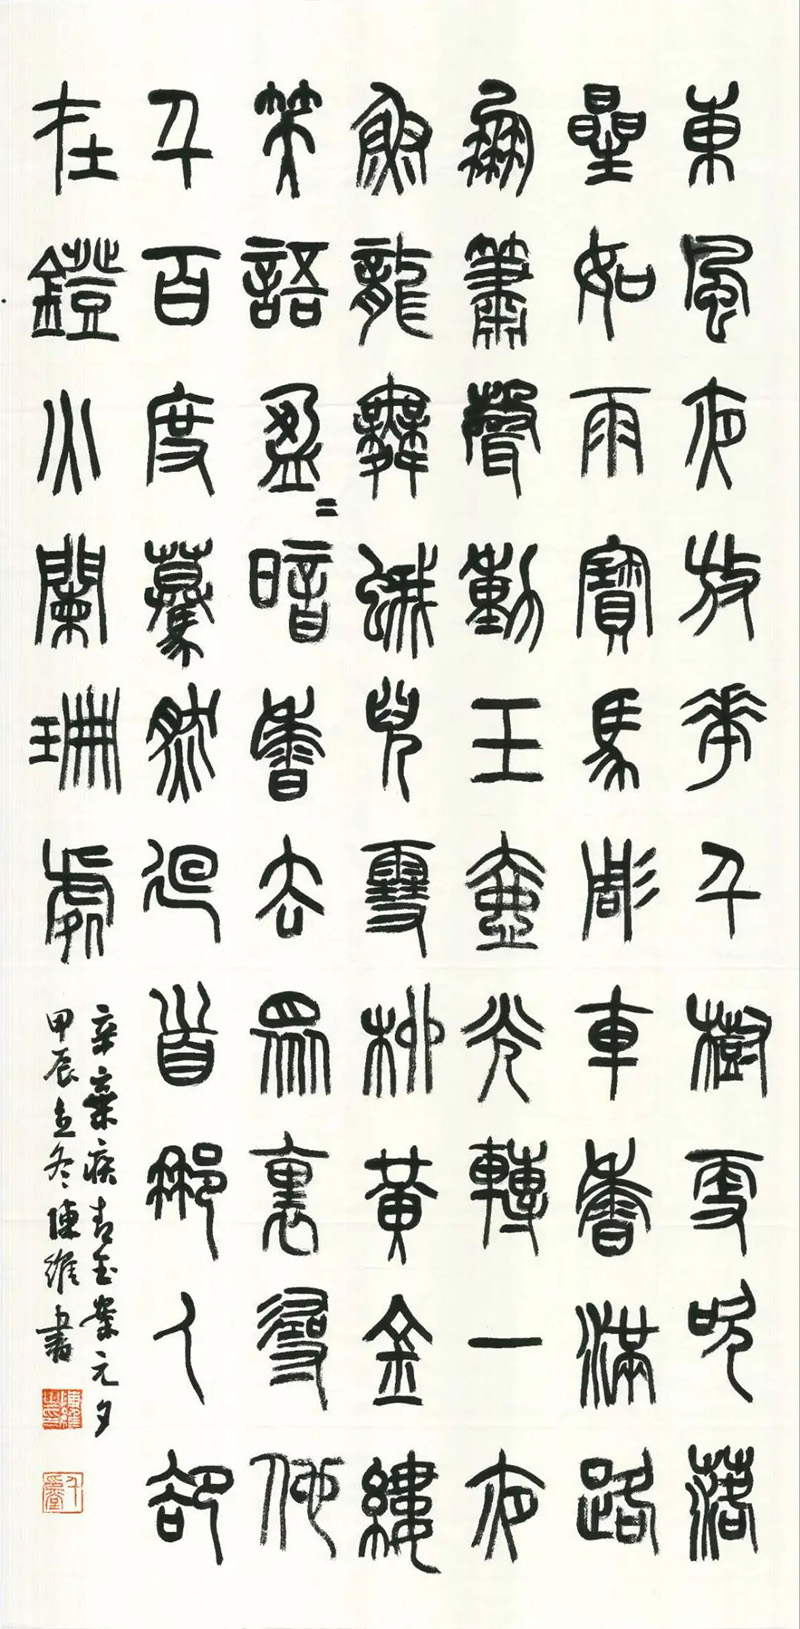 東風夜放花千樹更吹落
星如雨寶馬彫車香滿路
鳳簫聲動玉壺光轉一夜
魚龍舞蛾兒雪柳黃金縷
笑語盈〻暗香去眾裏尋他
千百度驀然迴首那人卻
在鐙火闌珊處
辛棄疾青玉案元夕
甲辰立冬陳維書